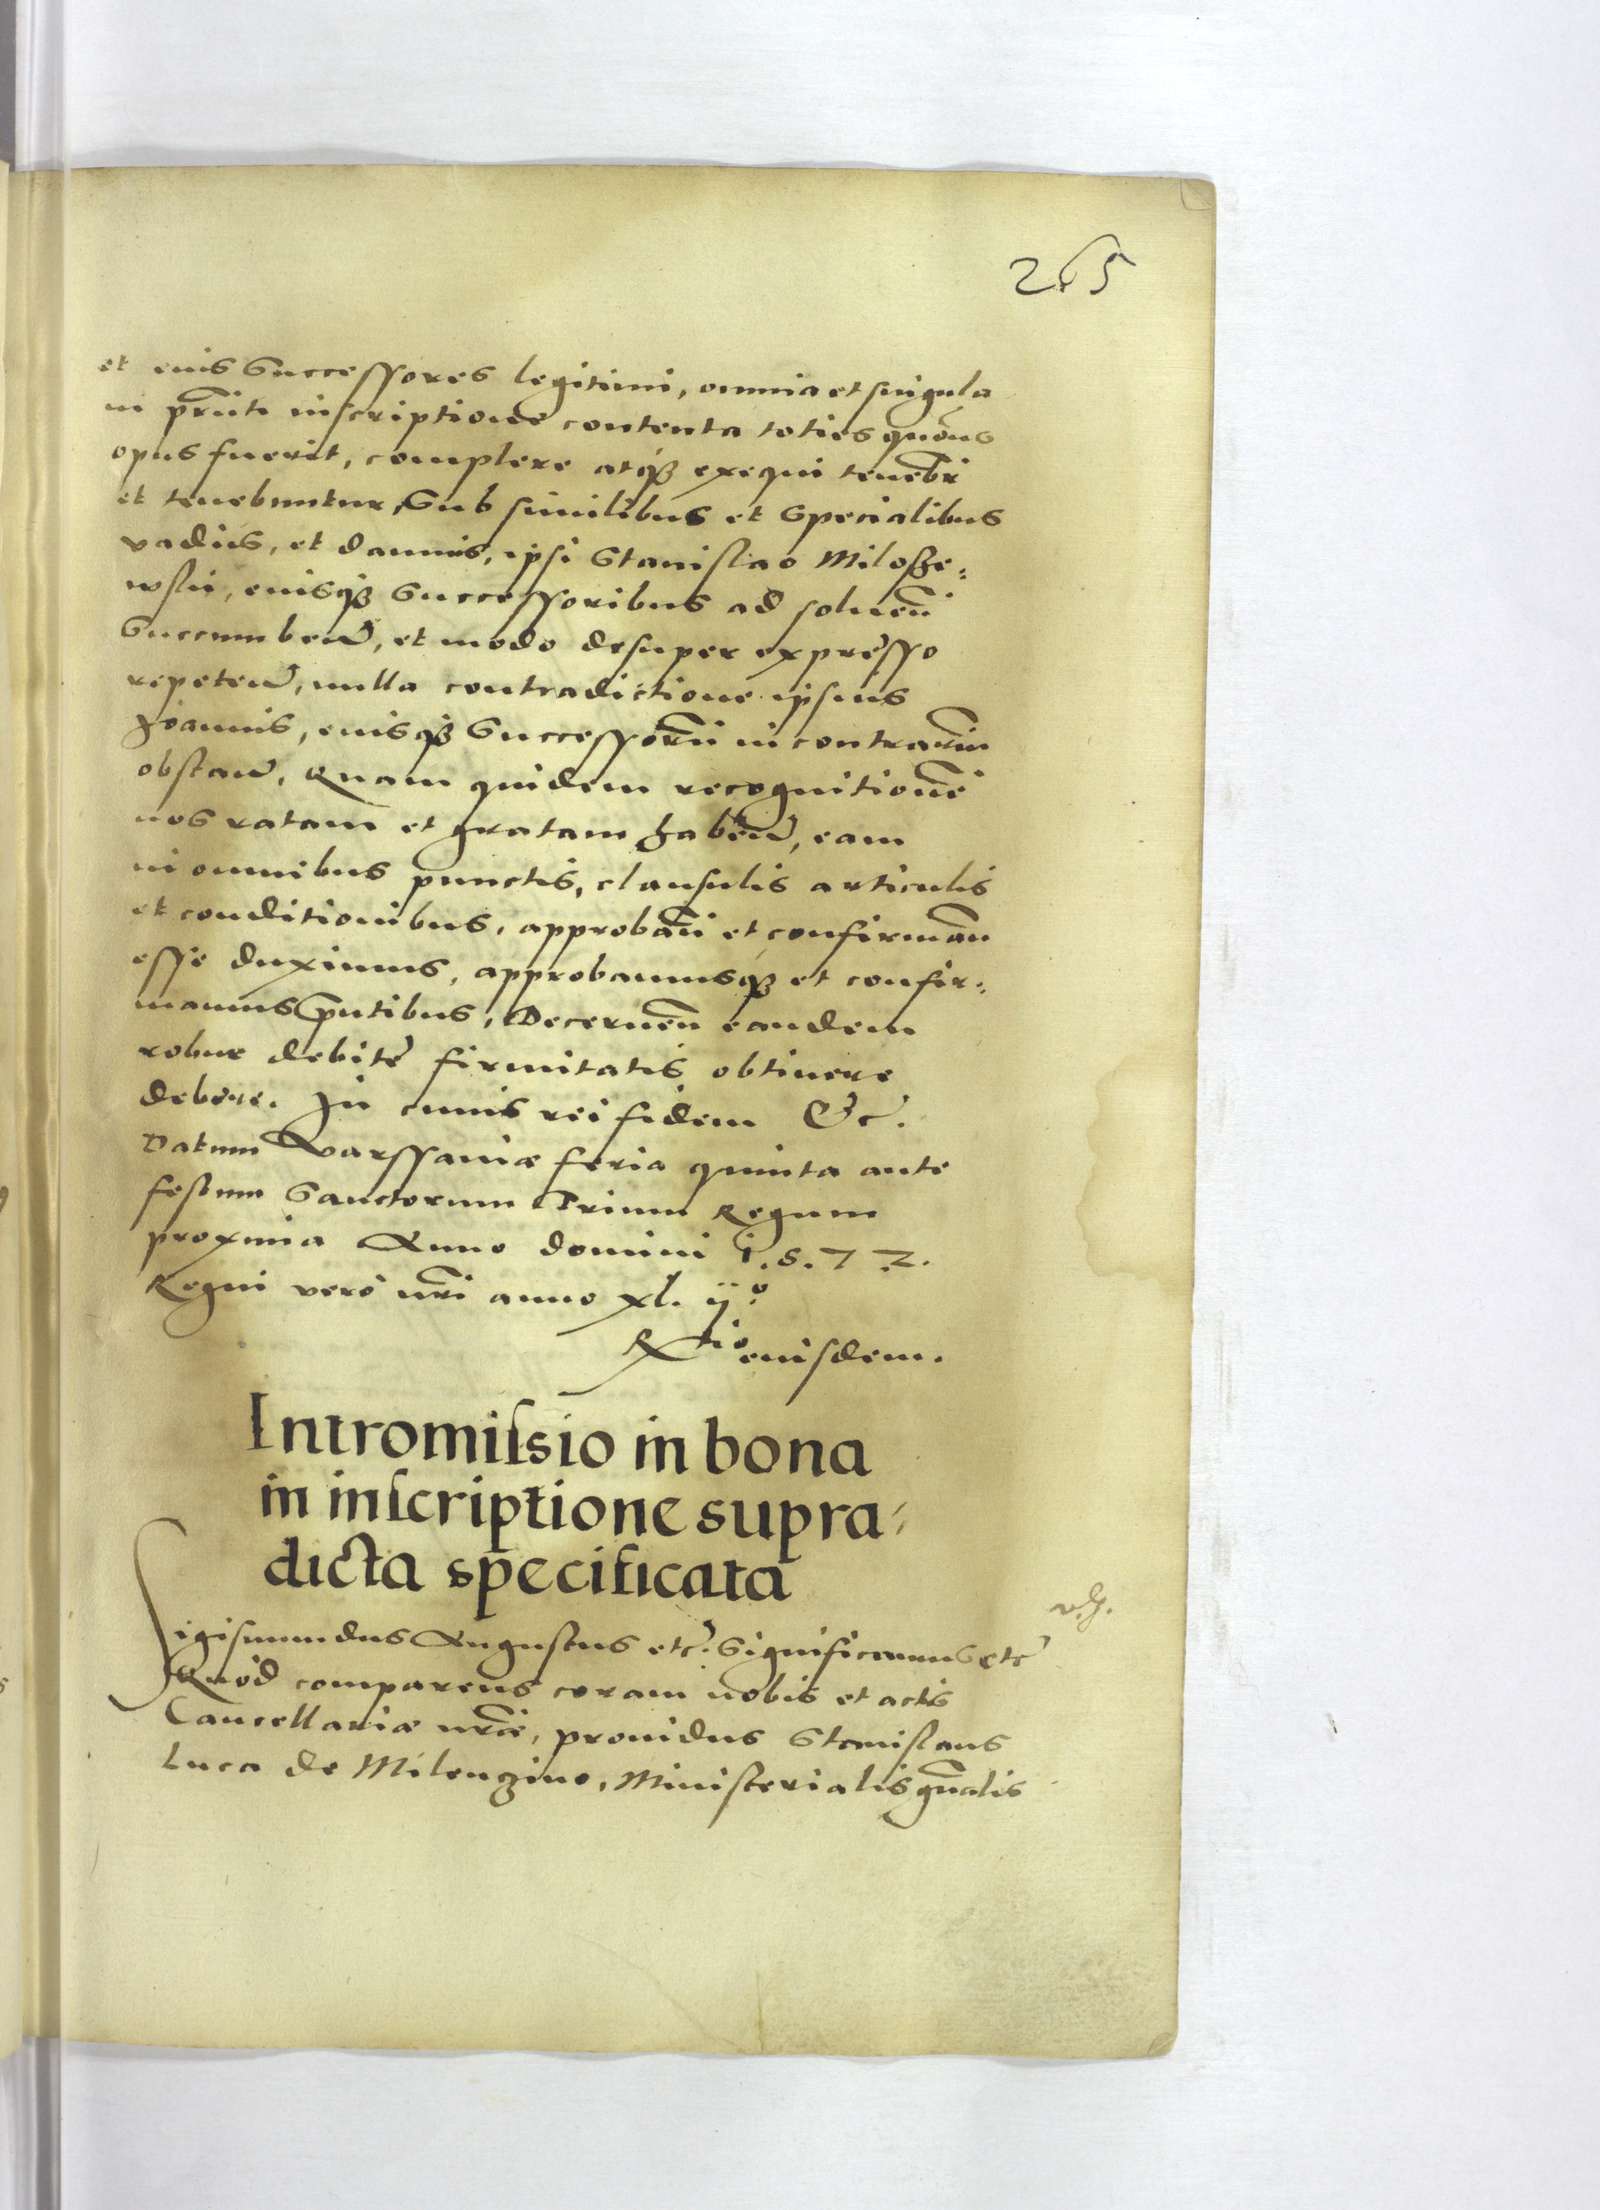 265
et eius Successores legitimi, omnia et singula
in pñti inscriptione contenta toties quoties
opus fuerit, complere atq3 exequi tenebr̃
et tenebuntur, Sub similibus et Specialibus
vadiis, et damnis, ipsi Stanislao Milosze:
wski, eiusq3 Successoribus ad soluen̄
Succumben̄, et modo desuper expresso
repeten̄, nulla contradictione ipsius
Joannis, eiusq3 Successorū in contrariū
obstan̄. Quam quidem recognitionē
nos ratam et gratam haben̄, eam
in omnibus punctis, clausulis articulis
et conditionibus, approban̄ et confirman̄
esse duximus, approbamusq3 et confir:
mamus pñtibus, Decernen̄ eandem
robur debitę firmitatis obtinere
debere. In cuius rei fidem &c.
Datum Varssauiæ feria quinta ante
festum Sanctorum Trium Regum
proxima Anno domini 1.5.7 2.
Regni vero nr̃i anno xl. ij.º
Rtio eiusdem.
Intromissio in bona
in inscriptione supra-
dicta specificata
v.h.
Sigismundus Augustus etc. Significamus etc
Quod comparens coram nobis et actis
Cancellariæ nr̃æ, prouidus Stanislaus
Luca de Milenzino, Ministerialis gnãlis